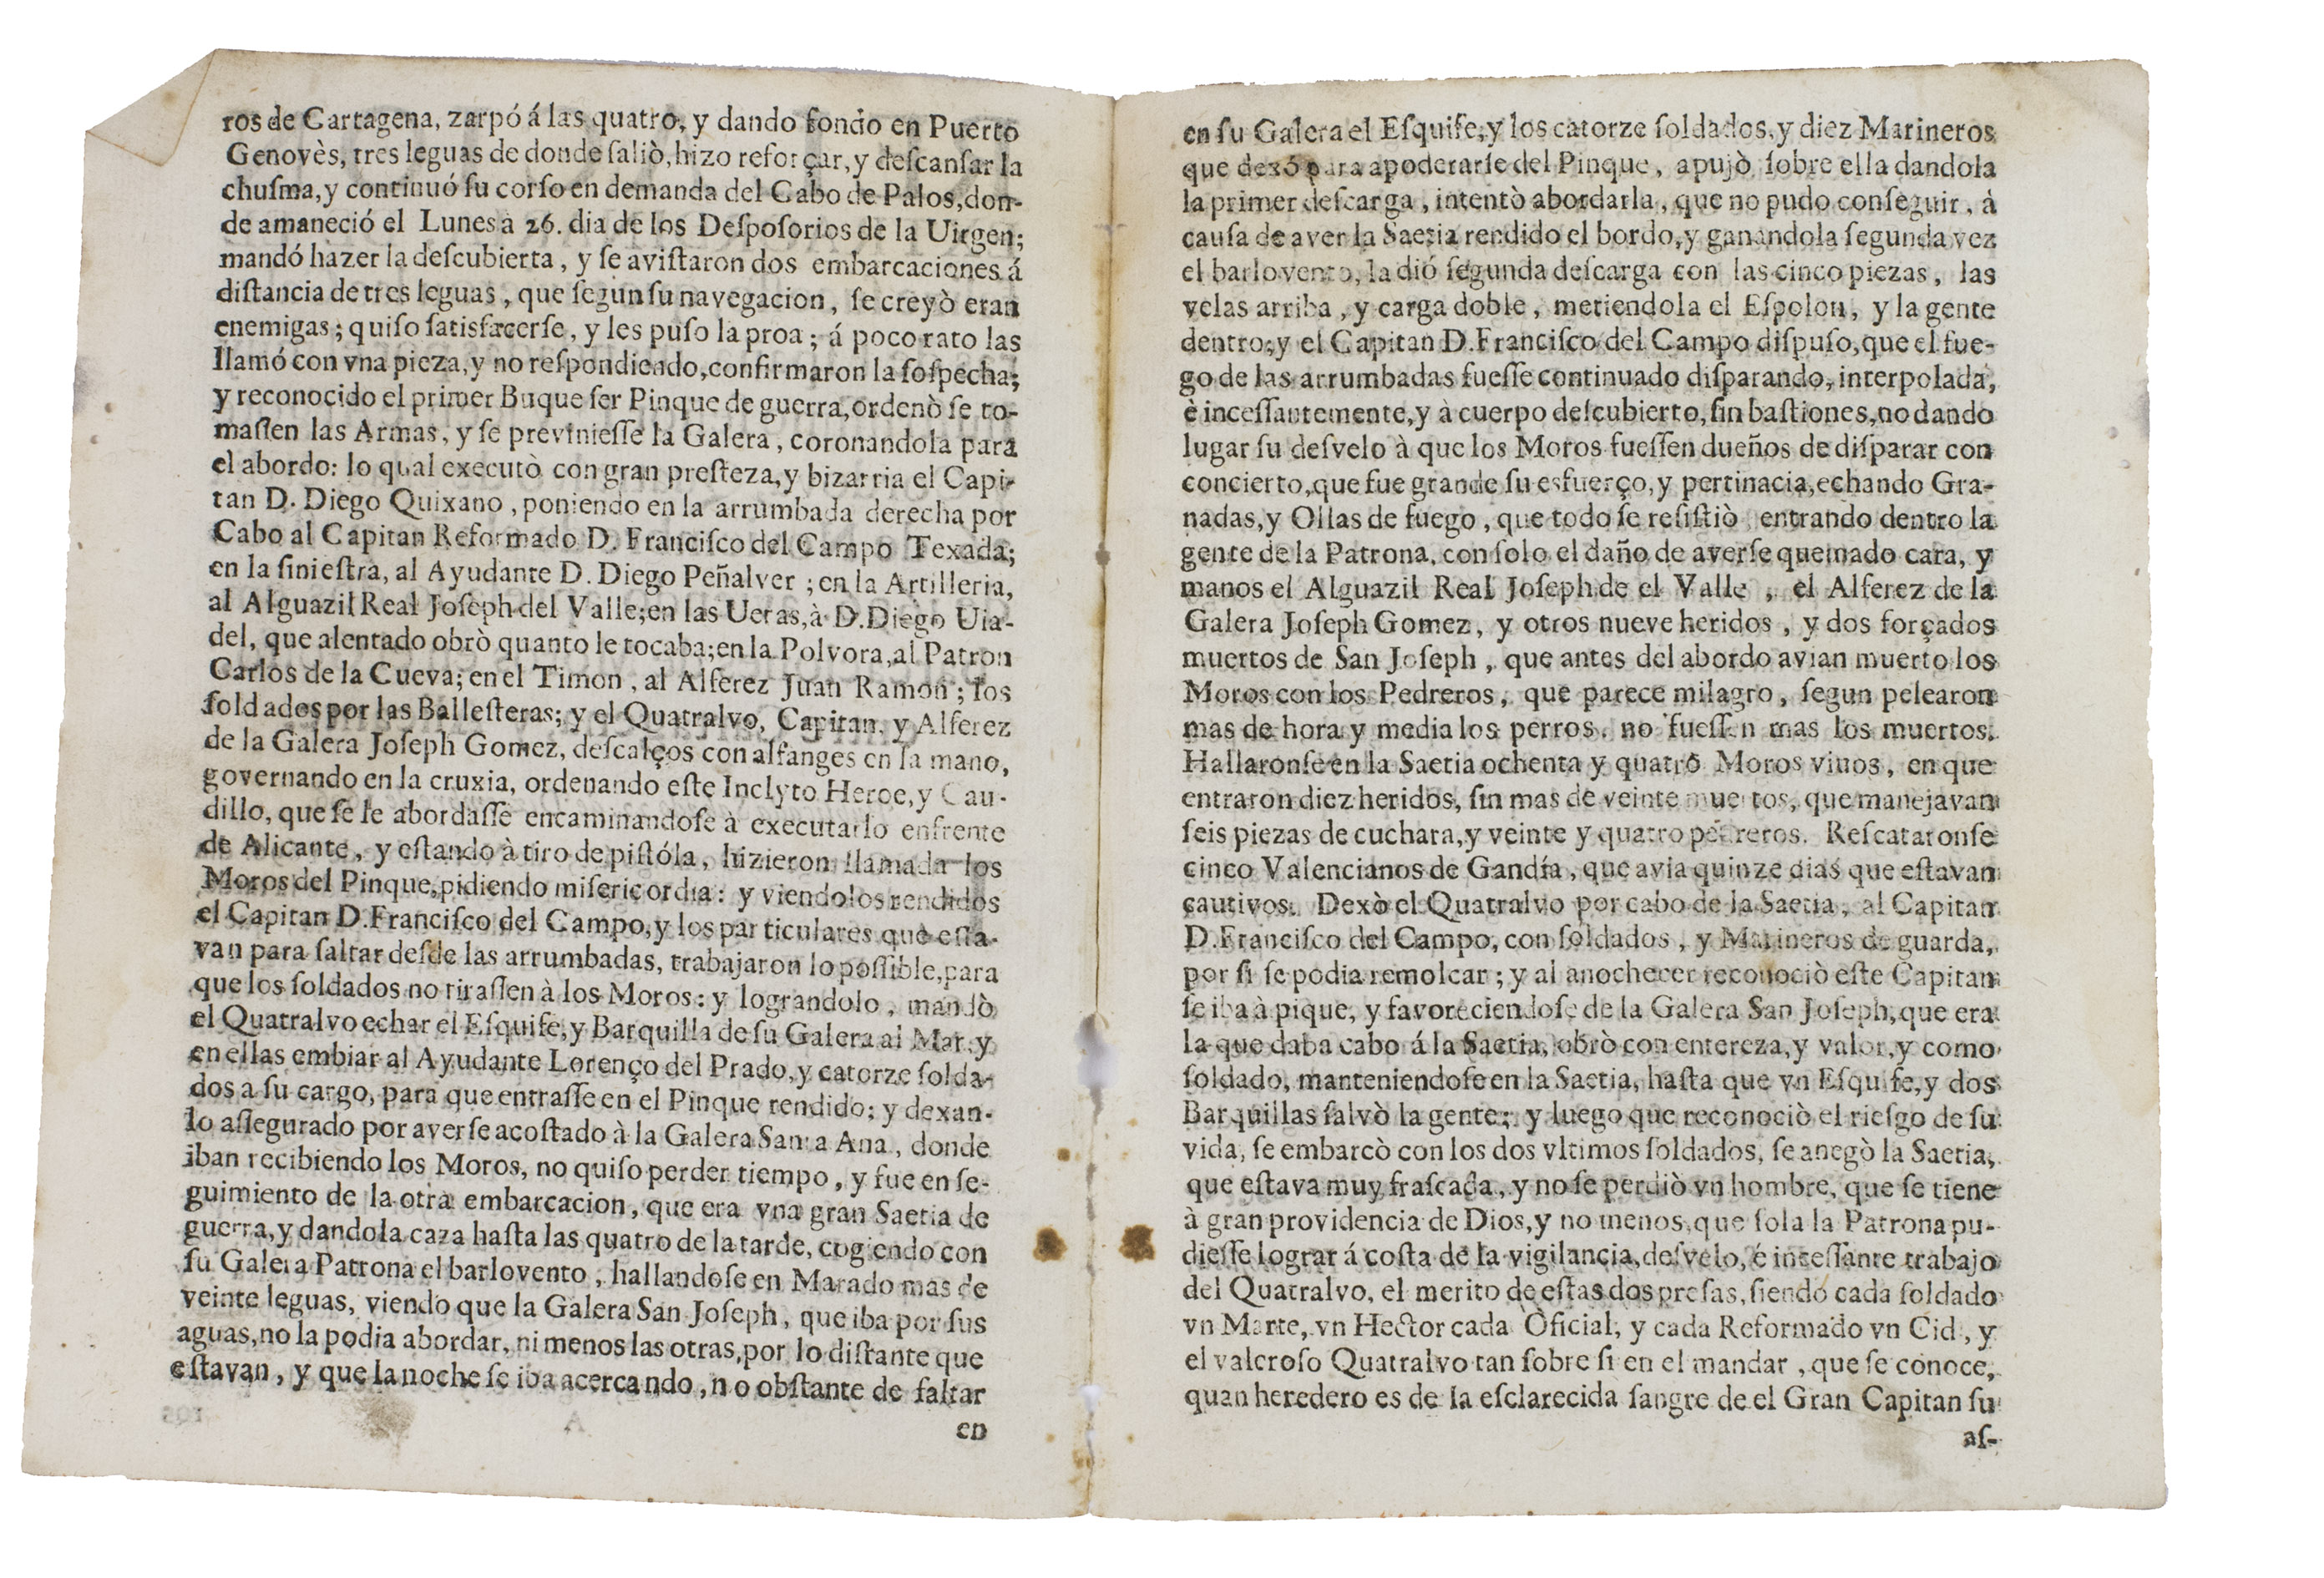 ros de Cartagena, zarpó á las quatro, y dando fondo en Puerto
Genovès, tres leguas de donde ſaliò, hizo reforçar, y deſcanſar la
chuſma, y continuó ſu corſo en demanda del Cabo de Palos, don-
de amaneció el Lunes à 26. dia de los Deſpoſorios de la Uirgen;
mandó hazer la deſcubierta, y ſe aviſtaron dos embarcaciones á
diſtancia de tres leguas, que ſegun ſu navegacion, ſe creyò eran
enemigas; quiſo ſatisfacerſe, y les puſo la proa; á poco rato las
llamó con vna pieza, y no reſpondiendo, confirmaron la ſoſpecha;
y reconocido el primer Buque ſer Pinque de guerra, ordenò ſe to-
maſſen las Armas, y ſe previnieſſe la Galera, coronandola para
el abordo: lo qual executò con gran preſteza, y bizarria el Capi-
tan D. Diego Quixano, poniendo en la arrumbada derecha por
Cabo al Capitan Reformado D. Franciſco del Campo Texada;
en la ſinieſtra, al Ayudante D. Diego Peñalver; en la Artilleria,
al Alguazil Real Joſeph del Valle; en las Ueras, à D. Diego Uia-
del, que alentado obrò quanto le tocaba; en la Polvora, al Patron
Carlos de la Cueva; en el Timon, al Alferez Juan Ramon; los
ſoldados por las Balleſteras; y el Quatralvo, Capitan, y Alferez
de la Galera Joſeph Gomez, deſcalços con alfanges en la mano,
governando en la cruxia, ordenando eſte Inclyto Heroe, y Cau-
dillo, que ſe le abordaſſe encaminandoſe à executarlo enfrente
de Alicante, y eſtando à tiro de piſtóla, hizieron llamada los
Moros del Pinque, pidiendo miſericordia: y viendolos rendidos
el Capitan D. Franciſco del Campo, y los particulares que eſta-
van para ſaltar deſde las arrumbadas, trabajaron lo poſſible, para
que los ſoldados no tiraſſen à los Moros: y lograndolo, mandò
el Quatralvo echar el Eſquife, y Barquilla de ſu Galera al Mar, y
en ellas embiar al Ayudante Lorenço del Prado, y catorze ſolda-
dos a ſu cargo, para que entraſſe en el Pinque rendido; y dexan-
lo aſſegurado por averſe acoſtado à la Galera Santa Ana, donde
iban recibiendo los Moros, no quiſo perder tiempo, y fue en ſe-
guimiento de la otra embarcacion, que era vna gran Saetia de
guerra, y dandola caza haſta las quatro de la tarde, cogiendo con
ſu Galera Patrona el barlovento, hallandoſe en Marado mas de
veinte leguas, viendo que la Galera San Joſeph, que iba por ſus
aguas, no la podia abordar, ni menos las otras, por lo diſtante que
eſtavan, y que la noche ſe iba acercando, no obſtante de faltar
en
en ſu Galera el Eſquife, y los catorze ſoldados, y diez Marineros
que dexó para apoderarſe del Pinque, apujò ſobre ella dandola
la primer deſcarga, intentò abordarla, que no pudo conſeguir, à
cauſa de aver la Saetia rendido el bordo, y ganandola ſegunda vez
el barlovento, la dió ſegunda deſcarga con las cinco piezas, las
velas arriba, y carga doble, metiendola el Eſpolon, y la gente
dentro; y el Capitan D. Franciſco del Campo diſpuſo, que el fue-
go de las arrumbadas fueſſe continuado diſparando, interpolada,
è inceſſantemente, y à cuerpo deſcubierto, ſin baſtiones, no dando
lugar ſu deſvelo à que los Moros fueſſen dueños de diſparar con
concierto, que fue grande ſu esfuerço, y pertinacia, echando Gra-
nadas, y Ollas de fuego, que todo ſe reſiſtiò entrando dentro la
gente de la Patrona, con ſolo el daño de averſe quemado cara, y
manos el Alguazil Real Joſeph de el Valle, el Alferez de la
Galera Joſeph Gomez, y otros nueve heridos, y dos forçados
muertos de San Joſeph, que antes del abordo avian muerto los
Moros con los Pedreros, que parece milagro, ſegun pelearon
mas de hora y media los perros, no fueſſen mas los muertos.
Hallaronſe en la Saetia ochenta y quatro Moros viuos, en que
entraron diez heridos, ſin mas de veinte muertos, que manejavan
ſeis piezas de cuchara, y veinte y quatro pedreros. Reſcataronſe
cinco Valencianos de Gandía, que avia quinze dias que eſtavan
cautivos. Dexò el Quatralvo por cabo de la Saetia, al Capitan
D. Franciſco del Campo, con ſoldados, y Marineros de guarda,
por ſi ſe podia remolcar; y al anochecer reconociò eſte Capitan
ſe iba à pique, y favoreciendoſe de la Galera San Joſeph, que era
la que daba cabo á la Saetia, obrò con entereza, y valor, y como
ſoldado, manteniendoſe en la Saetia, haſta que vn Eſquife, y dos
Barquillas ſalvò la gente; y luego que reconociò el rieſgo de ſu
vida, ſe embarcò con los dos vltimos ſoldados, ſe anegò la Saetia,
que eſtava muy fraſcada, y no ſe perdiò vn hombre, que ſe tiene
à gran providencia de Dios, y no menos, que ſola la Patrona pu-
dieſſe lograr á coſta de la vigilancia, deſvelo, é inceſſante trabajo
del Quatralvo, el merito de eſtas dos preſas, ſiendo cada ſoldado
vn Marte, vn Hector cada Oficial, y cada Reformado vn Cid, y
el valeroſo Quatralvo tan ſobre ſi en el mandar, que ſe conoce,
quan heredero es de la eſclarecida ſangre de el Gran Capitan ſu
aſ-